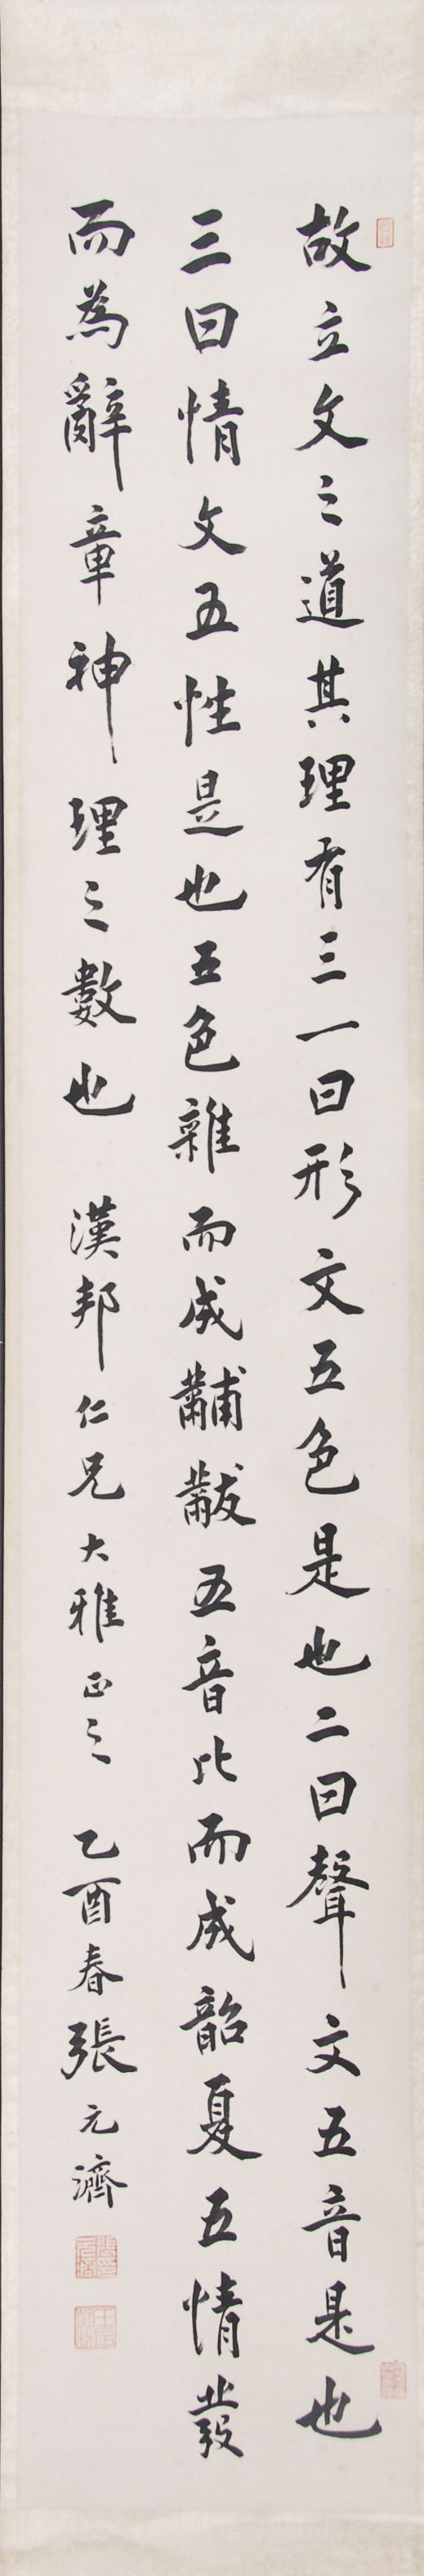 故立文之道其理有三一曰形文五色是也二曰聲文五音是也
三曰情文五性是也五色雜而成黼黻五音比而成韶夏五情發
而為辭章神理之數也 漢邦仁兄大雅正之 乙酉春張元濟